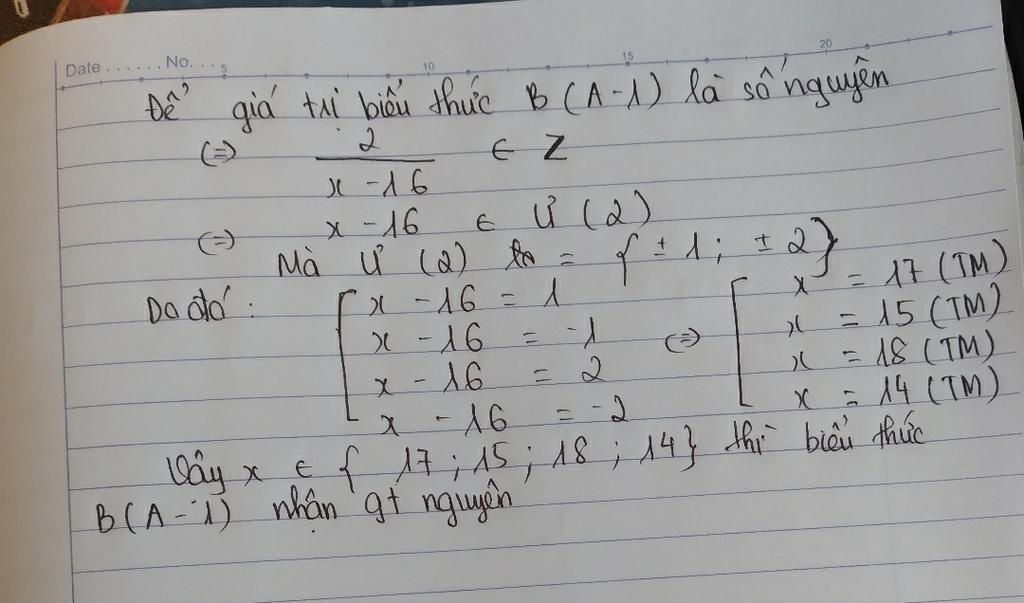 Date ...... No. ... 5 10 15 20
Để giá trị biểu thức B(A-1) là số nguyên
(=) 2/(x-16) ∈ Z
(=) x-16 ∈ Ư(2)
Mà Ư(2) = {±1; ±2}
Do đó: [x-16 = 1 [x = 17 (TM)
x-16 = -1 (=) x = 15 (TM)
x-16 = 2 x = 18 (TM)
x-16 = -2 x = 14 (TM)
Vậy x ∈ {17; 15; 18; 14} thì biểu thức
B(A-1) nhận gt nguyên